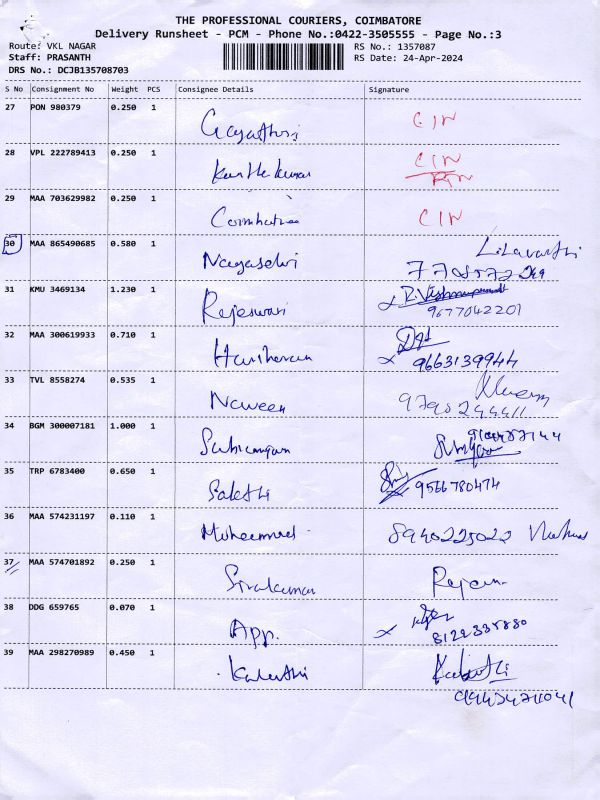 THE PROFESSIONAL COURIERS, COIMBATORE
Delivery Runsheet - PCM - Phone No.:0422-3505555 - Page No.:3
Route: VKL NAGAR RS No.: 1357087
Staff: PRASANTH RS Date: 24-Apr-2024
DRS No.: DCJB135708703
S No Consignment No Weight PCS Consignee Details Signature
27 PON 980379 0.250 1 Gayathri CIN
28 VPL 222789413 0.250 1 Karthikumar CIN
29 MAA 703629982 0.250 1 Coimbatore CIN
30 MAA 865490685 0.580 1 Nagaselvi Lilavathi
31 KMU 3469134 1.230 1 Rajeswari
9677042201
32 MAA 300619933 0.710 1 Hariharan
9663139944
33 TVL 8558274 0.535 1 Naveen
9790244411
34 BGM 300007181 1.000 1
35 TRP 6783400 0.650 1 Sakthi 9566780474
36 MAA 574231197 0.110 1 Mohammed 8940225022
37 MAA 574701892 0.250 1 Sivakumar
38 DDG 659765 0.070 1 App.
8122335880
39 MAA 298270989 0.450 1